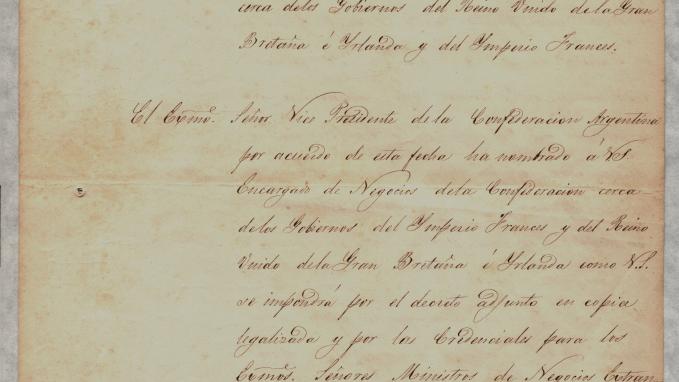 cerca delos Gobiernos del Reino Unido de la Gran
Bretaña é Yrlanda y del Ymperio Frances.
El Exmõ. Señor Vice Presidente de la Confederacion Argentina
por acuerdo de esta fecha ha nombrado á V.S.
Encargado de Negocios dela Confederacion cerca
delos Gobiernos del Ymperio Frances y del Reino
Unido dela Gran Bretaña é Yrlanda como V.S.
se impondrá por el decreto adjunto en copia
legalizada y por las Credenciales para los
Exmõs. Señores Ministros de Negocios Extran